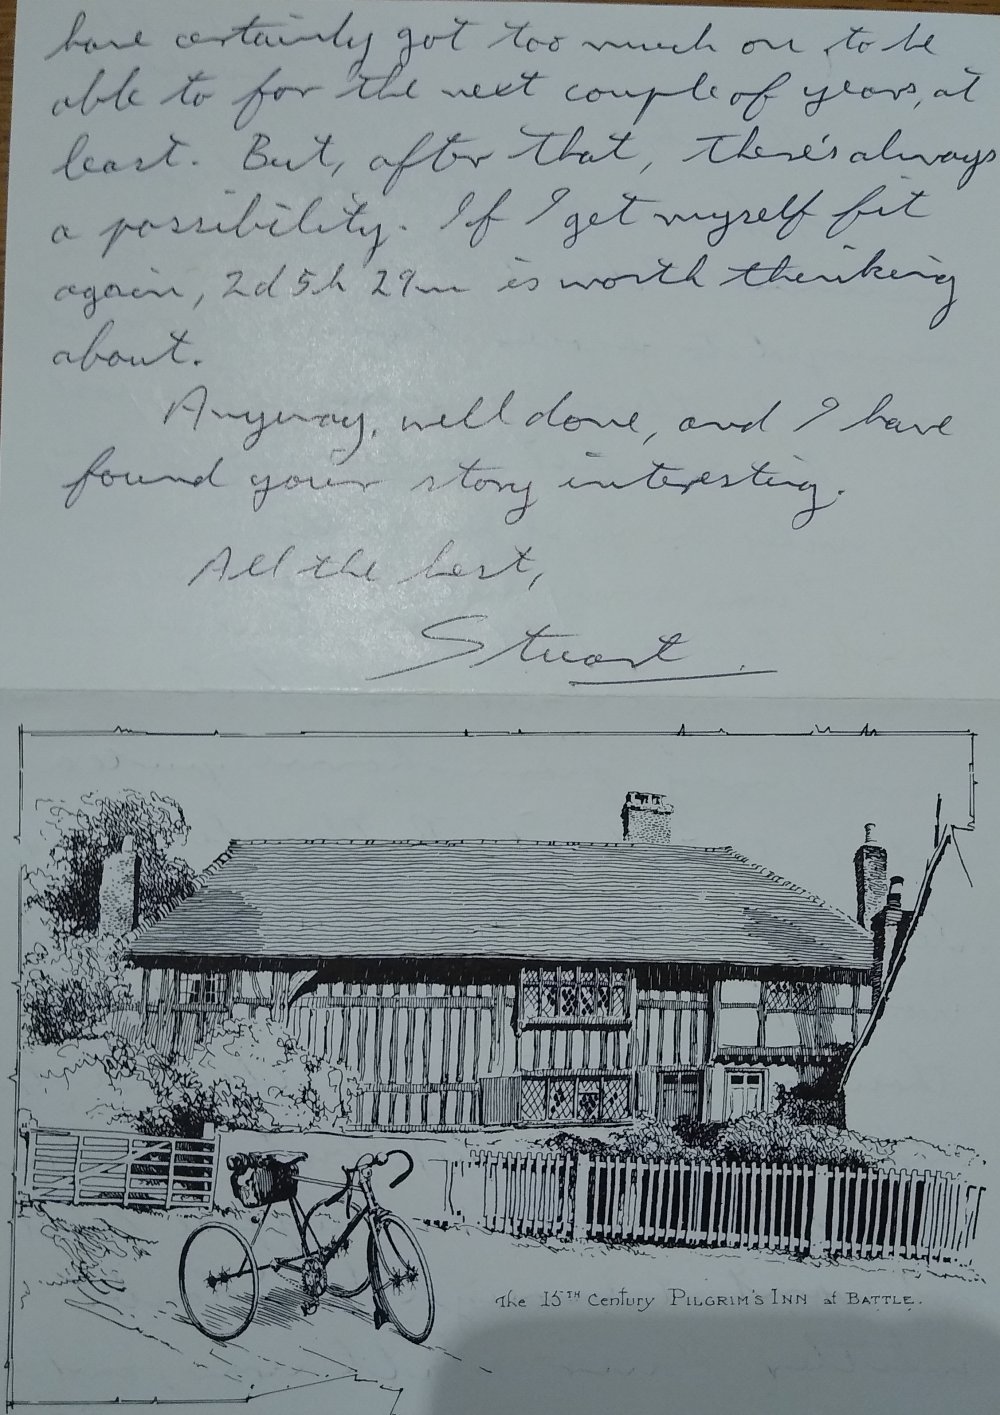 have certainly got too much on to be
able to for the next couple of years, at
least. But, after that, there's always
a possibility. If I get myself fit
again, 2d 5h 29m is worth thinking
about.
Anyway, well done, and I have
found your story interesting.
All the best,
Stuart
The 15TH Century PILGRIM'S INN at BATTLE.